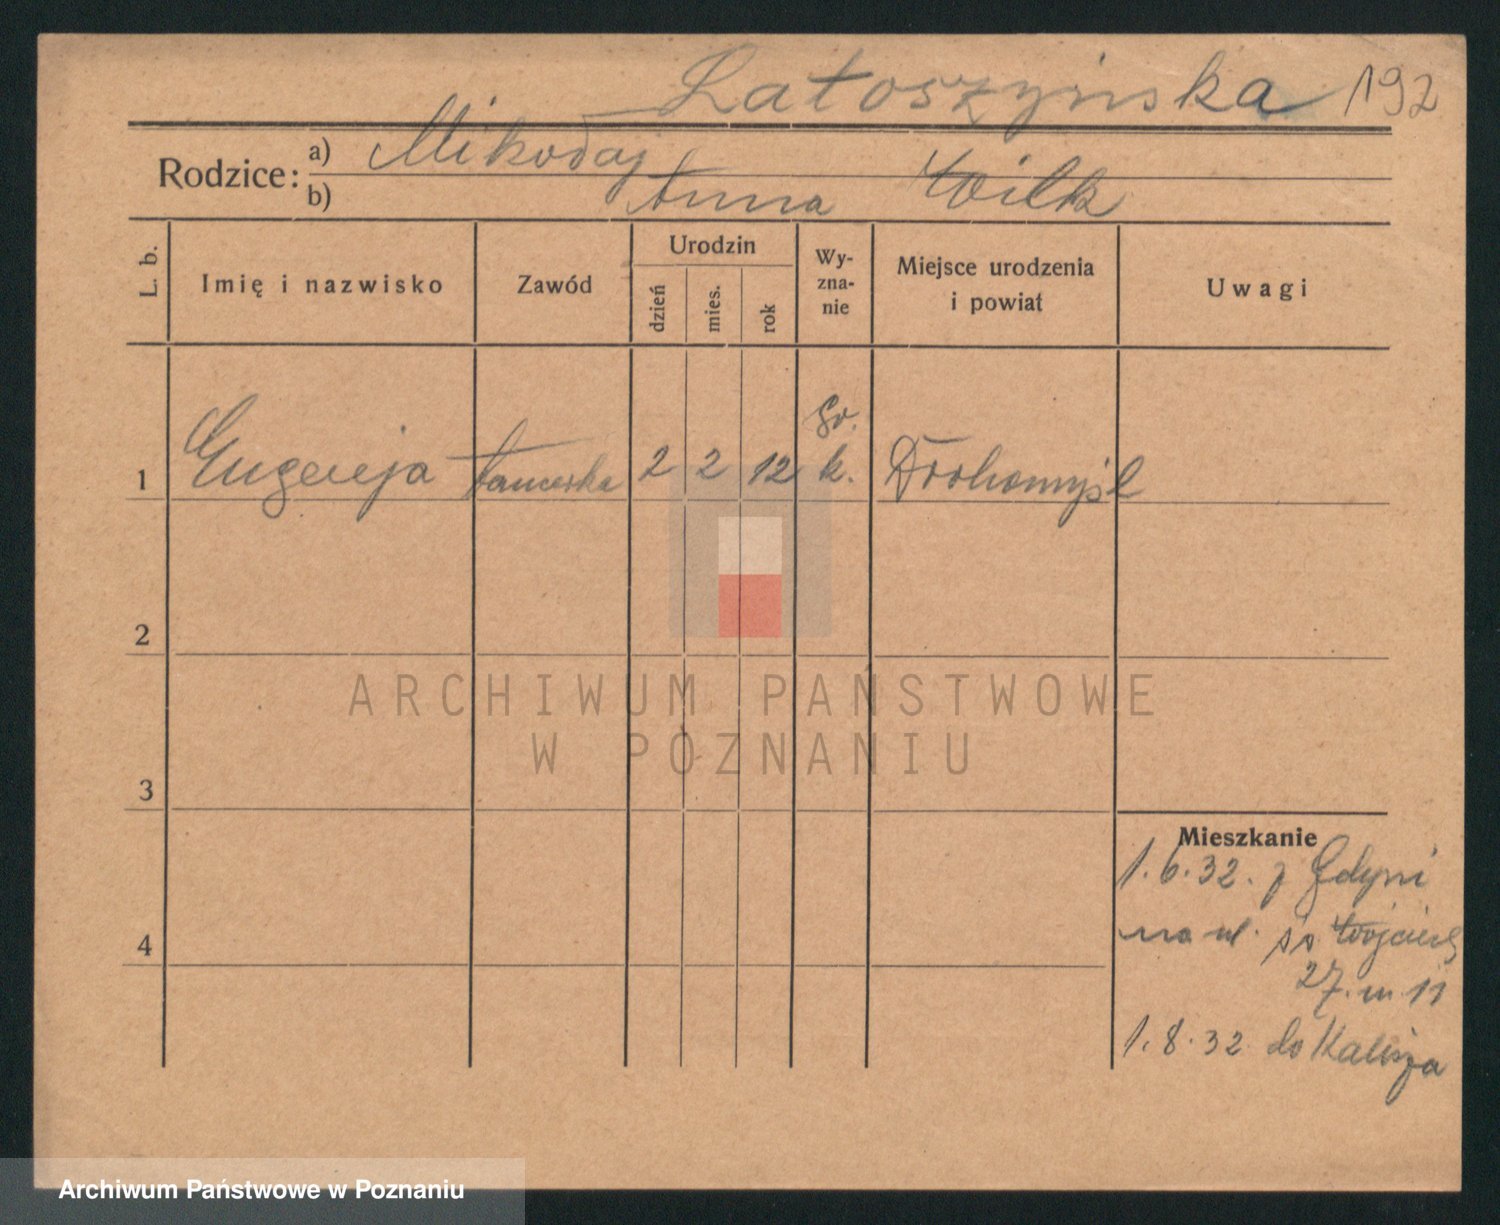 Latoszyńska 192
Rodzice: a) Mikołaj
b) Anna Wilk
L. b.
Imię i nazwisko
Zawód
Urodzin
dzień
mies.
rok
Wy-
zna-
nie
Miejsce urodzenia
i powiat
Uwagi
1 Eugenja tancerka 2 2 12 gr. k. Drohomyśl
2
3
4
Mieszkanie
1.6.32. z Gdyni
na ul. św. Wojciech
27. m. 11
1.8.32 do Kalisza
ARCHIWUM PAŃSTWOWE
W POZNANIU
Archiwum Państwowe w Poznaniu